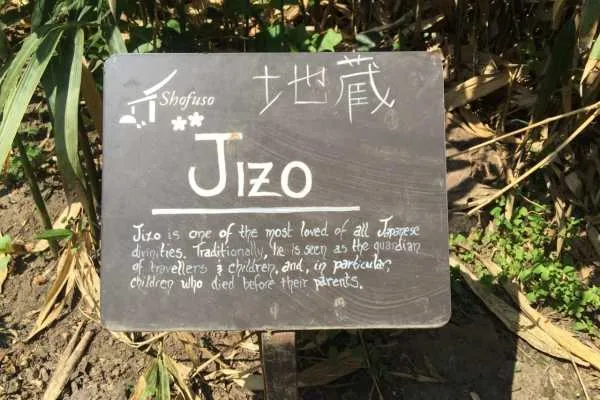 Shofuso
地蔵
Jizo
Jizo is one of the most loved of all Japanese
divinities. Traditionally, he is seen as the guardian
of travellers & children, and, in particular,
children who died before their parents.